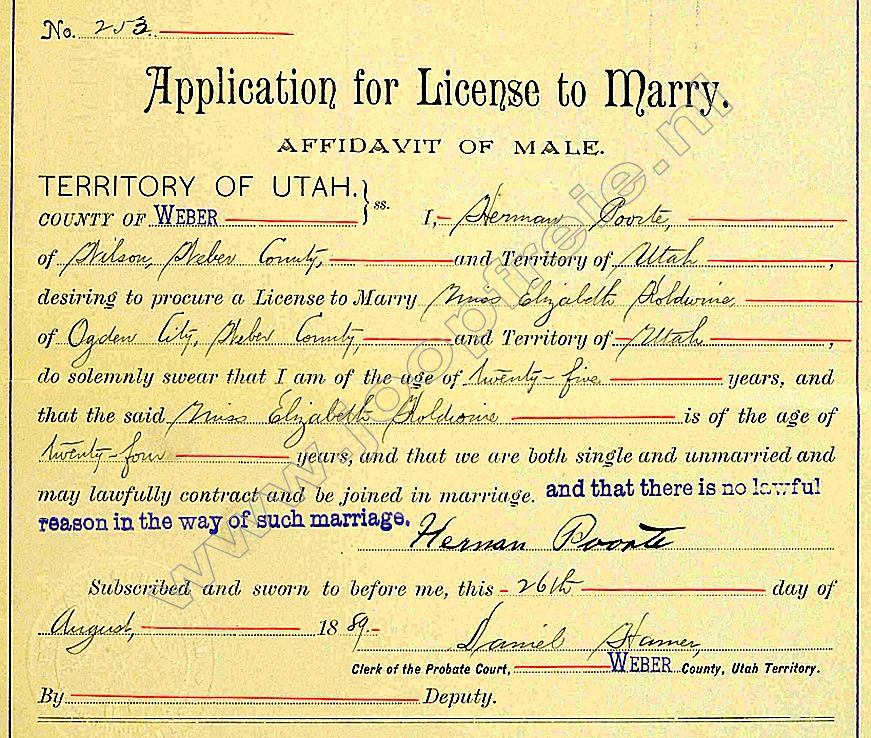 No. 253.
Application for License to Marry.
AFFIDAVIT OF MALE.
TERRITORY OF UTAH. } ss.
COUNTY OF WEBER I, Herman Poorte,
of Wilson, Weber County, and Territory of Utah,
desiring to procure a License to Marry Miss Elizabeth Holdwine,
of Ogden City, Weber County, and Territory of Utah,
do solemnly swear that I am of the age of twenty-five years, and
that the said Miss Elizabeth Holdwine is of the age of
twenty-four years, and that we are both single and unmarried and
may lawfully contract and be joined in marriage. and that there is no lawful
reason in the way of such marriage.
Hernan Poorte
Subscribed and sworn to before me, this 26th day of
August, 1889.
Daniel Hamer,
Clerk of the Probate Court, WEBER County, Utah Territory.
By Deputy.
www.joopfreie.nl